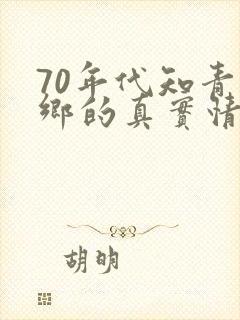 70年代知青
鄉的真實情
胡明